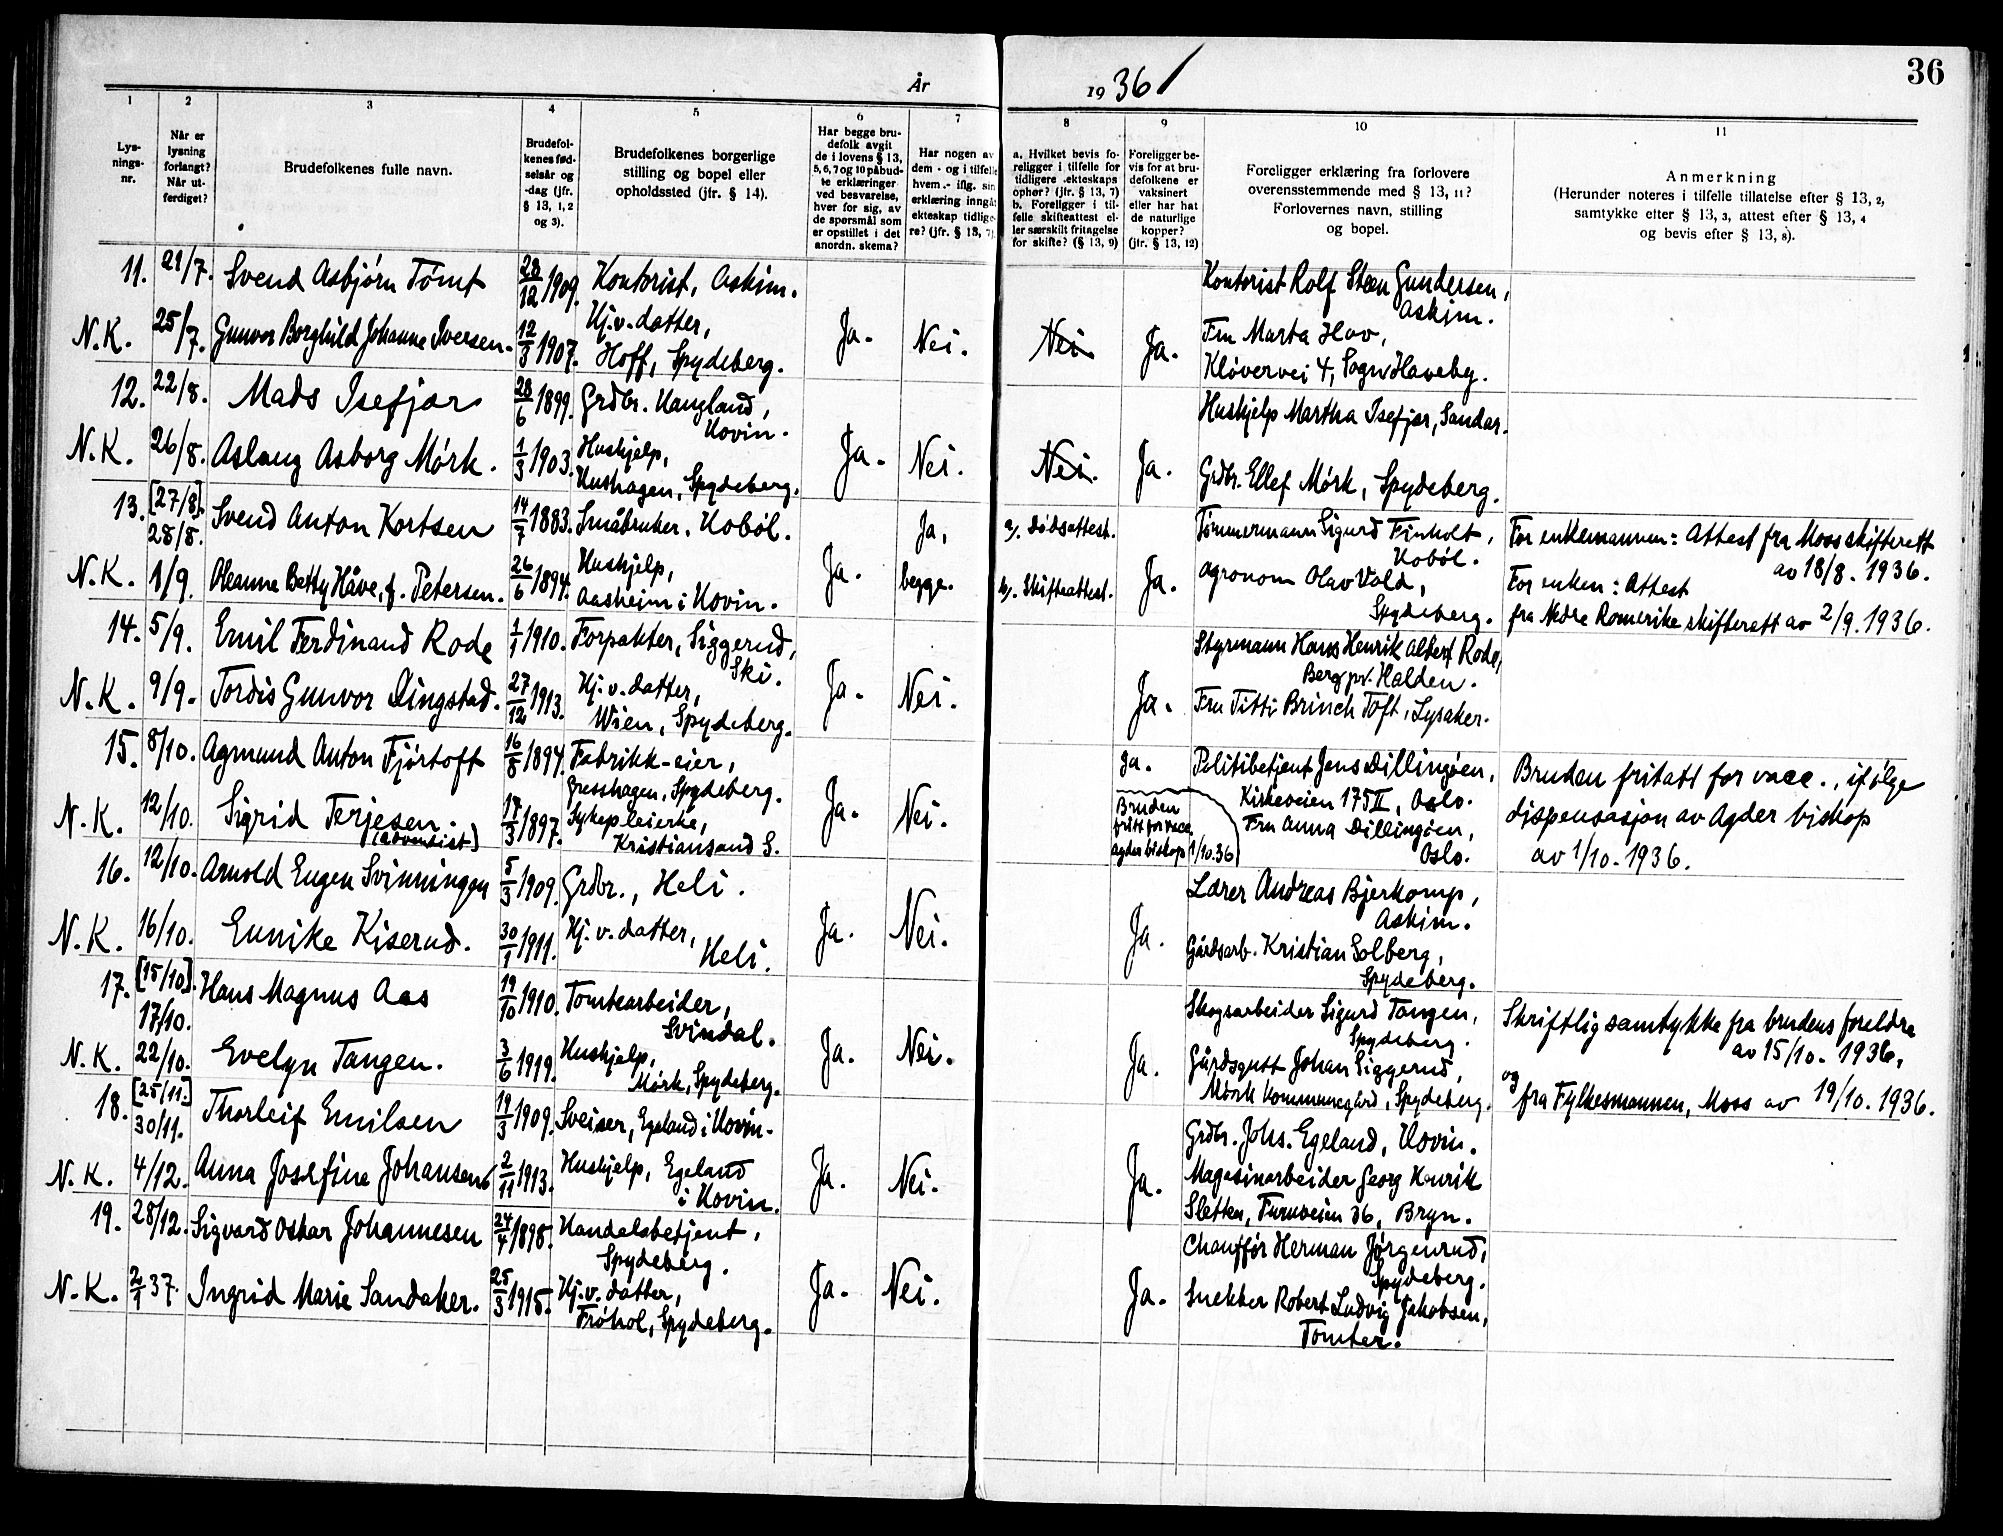 36
År 1936
1 2 3 4 5 6 7 8 9 10 11
Lys-
nings-
nr.
Når er
lysning
forlangt?
Når ut-
ferdiget?
Brudefolkenes fulle navn.
Brudefol-
kenes fød-
selsår og
-dag (jfr.
§ 13, 1, 2
og 3).
Brudefolkenes borgerlige
stilling og bopel eller
opholdssted (jfr. § 14).
Har begge bru-
defolk avgit
de i lovens § 13,
5, 6, 7 og 10 påbud-
te erklæringer
ved besvarelse,
hver for sig, av
de spørsmål som
er opstillet i det
anordn. skema?
Har nogen av
dem - og i tilfelle
hvem - iflg. sin
erklæring inngått
ekteskap tidlige-
re? (jfr. § 13, 7)
a. Hvilket bevis fo-
religger i tilfelle for
tidligere ekteskaps
ophør? (jfr. § 13, 7)
b. Foreligger i til-
felle skifteattest el-
ler særskilt fritagelse
for skifte? (§ 13, 9)
Foreligger be-
vis for at bru-
defolkene er
vaksinert
eller har hat
de naturlige
kopper?
(jfr. § 13, 12)
Foreligger erklæring fra forlovere
overensstemmende med § 13, 11?
Forlovernes navn, stilling
og bopel.
Anmerkning
(Herunder noteres i tilfelle tillatelse efter § 13, 2,
samtykke efter § 13, 3, attest efter § 13, 4
og bevis efter § 13, 8).
11. 21/7. Svend Asbjørn Tømt 28/12 1909. Kontorist, Askim. Kontorist Rolf Steen Gundersen,
Askim.
N.K. 25/7. Gunvor Borghild Johanne Iversen. 12/3 1907. Hj.v. datter,
Hoff, Spydeberg. Ja. Nei. Nei. Ja. Fru Marta Hov,
Kløvervei 4, Sogn Haveby.
12. 22/8. Mads Isefjær 28/6 1899. Grdbr. Haugland,
Hovin. Huskjelp Martha Isefjær, Sandar.
N.K. 26/8. Aslaug Asborg Mørk. 1/3 1903. Huskjelp,
Hushagen, Spydeberg. Ja. Nei. Nei. Ja. Grdbr. Ellef Mørk, Spydeberg.
13. [27/8]. 28/8. Svend Anton Kortsen 14/7 1883. Småbruker. Hobøl. Ja, a). Dødsattest. Tømmermann Sigurd Finholt,
Hobøl. For enkemannen: Attest fra Moss skifterett
av 18/8. 1936.
N.K. 1/9. Oleanne Betty Håve, f. Petersen. 26/6 1894. Huskjelp,
Aasheim i Hovin. Ja. begge. b). Skifteattest. Ja. Agronom Olav Vold,
Spydeberg. For enken: Attest
fra Nedre Romerike skifterett av 2/9. 1936.
14. 5/9. Emil Ferdinand Rode 1/1 1910. Forpakter, Siggerud,
Ski. Styrmann Hans Henrik Albert Rode,
Berg pr. Halden.
N.K. 9/9. Tordis Gunvor Lingstad. 27/12 1913. Hj.v. datter,
Wien, Spydeberg. Ja. Nei. Ja. Fru Titti Brinch Toft, Lysaker.
15. 8/10. Agmund Anton Fjørtoft 16/8 1894. Fabrikk-eier,
Gresshagen, Spydeberg. Ja. Politibetjent Jens Dillingøen,
Kirkeveien 175 II, Oslo. Bruden fritatt for vacc., ifølge
dispensasjon av Agder biskop
av 1/10. 1936.
N.K. 12/10. Sigrid Terjesen.
(adventist) 17/3 1897. Sykepleierke,
Kristiansand S. Ja. Nei. Bruden
fritt for vacc.
Agder biskop 1/10.36 Fru Anna Dillingøen,
Oslo.
16. 12/10. Arnold Eugen Svinningen 5/3 1909. Grdbr., Heli. Lærer Andreas Bjerkomp,
Askim.
N.K. 16/10. Eunike Kiserud. 30/1 1911. Hj.v. datter,
Heli. Ja. Nei. Ja. Gårdsarb. Kristian Solberg,
Spydeberg.
17. [15/10]. 17/10. Hans Magnus Aas 19/10 1910. Tomtearbeider,
Svindal. Skogsarbeider Sigurd Tangen,
Spydeberg. Skriftlig samtykke fra brudens foreldre
av 15/10. 1936,
N.K. 22/10. Evelyn Tangen. 3/6 1919. Huskjelp,
Mørk, Spydeberg. Ja. Nei. Ja. Gårdsgutt Johan Siggerud,
Mørk Kommunegård, Spydeberg. og fra Fylkesmannen, Moss av 19/10. 1936.
18. [25/11.] 30/11. Thorleif Emilsen 19/3 1909. Sveiser, Egeland i Hovin. Grdbr. Johs. Egeland, Hovin.
N.K. 4/12. Anna Josefine Johansen 2/11 1913. Huskjelp, Egeland
i Hovin. Ja. Nei. Ja. Magasinarbeider Georg Henrik
Sletten, Furuveien 36, Bryn.
19. 28/12. Sigvard Oskar Johannesen 24/4 1898. Handelsbetjent,
Spydeberg. Chauffør Herman Jørgenrud,
Spydeberg.
N.K. 2/1 37. Ingrid Marie Sandaker. 25/3 1915. Hj.v. datter,
Frøhol, Spydeberg. Ja. Nei. Ja. Snekker Robert Ludvig Jakobsen,
Tomter.